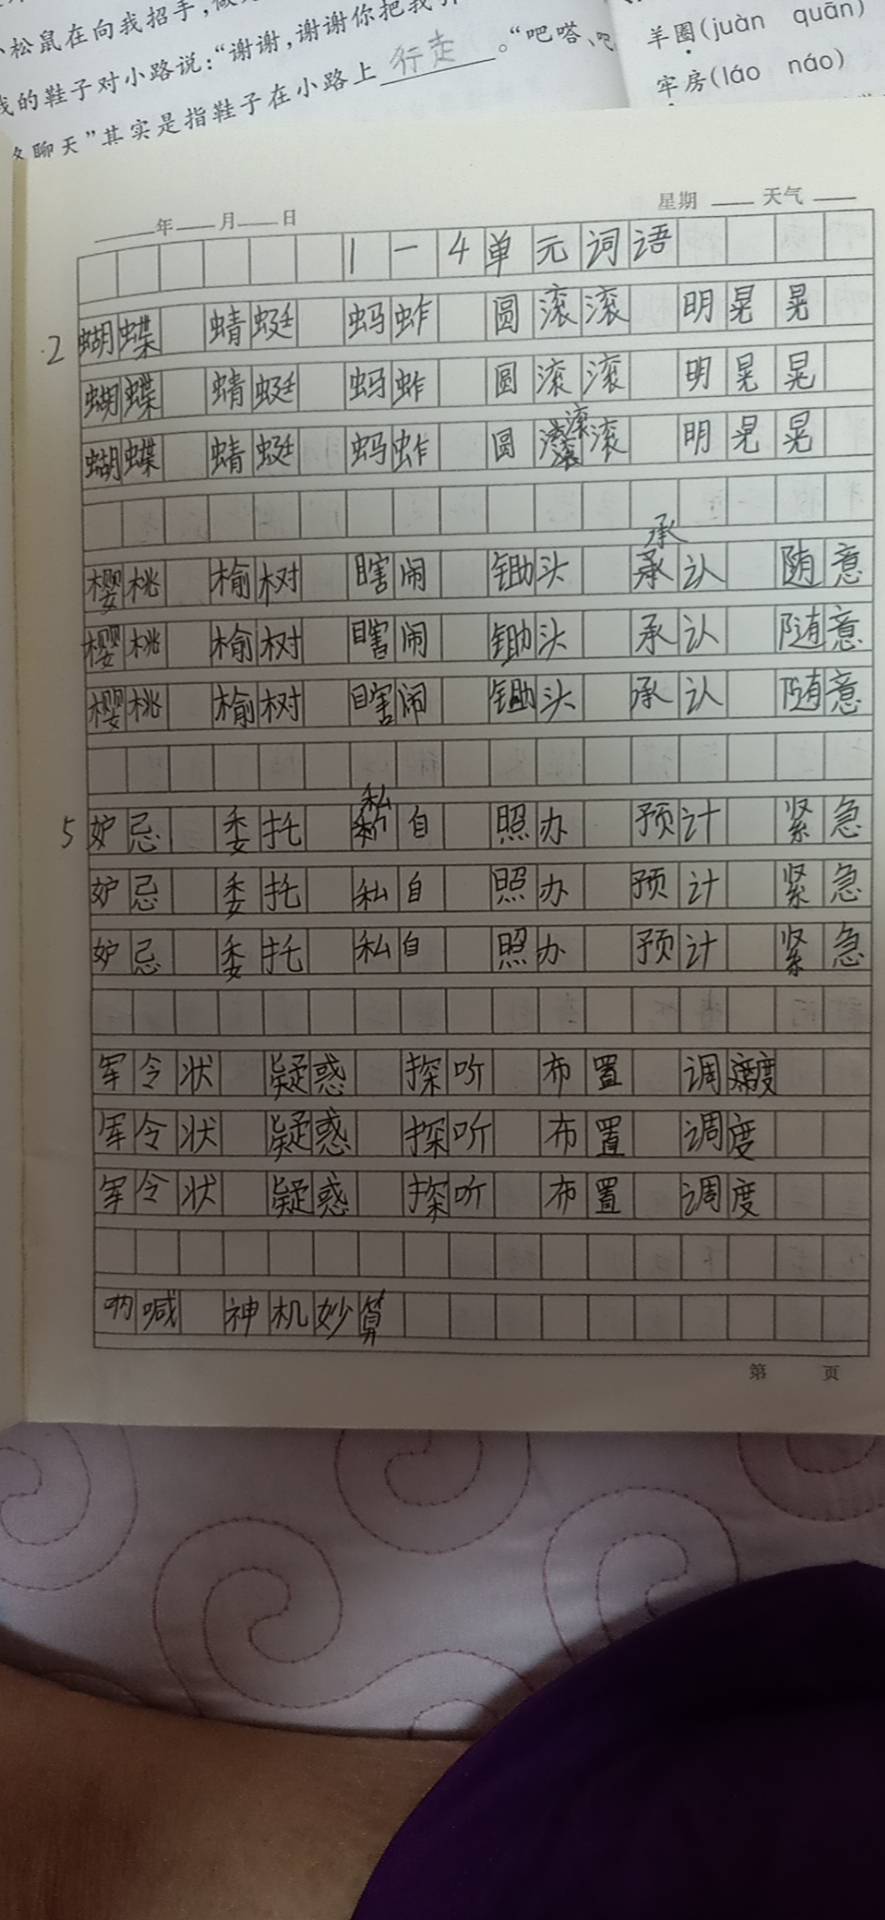 松鼠在向我招手,
谢谢,谢谢你把我
我的鞋子对小路说:“
的鞋子在小路上行走。“吧嗒、吧
聊天”其实是指鞋子在小路上
羊圈(juàn quān)
牢房(láo náo)
年 月 日 星期 天气
1一4单元词语
2 蝴蝶 蜻蜓 蚂蚱 圆滚滚 明晃晃
蝴蝶 蜻蜓 蚂蚱 圆滚滚 明晃晃
滚
蝴蝶 蜻蜓 蚂蚱 圆滚滚 明晃晃
承
樱桃 榆树 瞎闹 锄头 承认 随意
樱桃 榆树 瞎闹 锄头 承认 随意
樱桃 榆树 瞎闹 锄头 承认 随意
私
5 妒忌 委托 自 照办 预计 紧急
妒忌 委托 私自 照办 预计 紧急
妒忌 委托 私自 照办 预计 紧急
军令状 疑惑 探听 布置 调度
军令状 疑惑 探听 布置 调度
军令状 疑惑 探听 布置 调度
呐喊 神机妙算
第 页